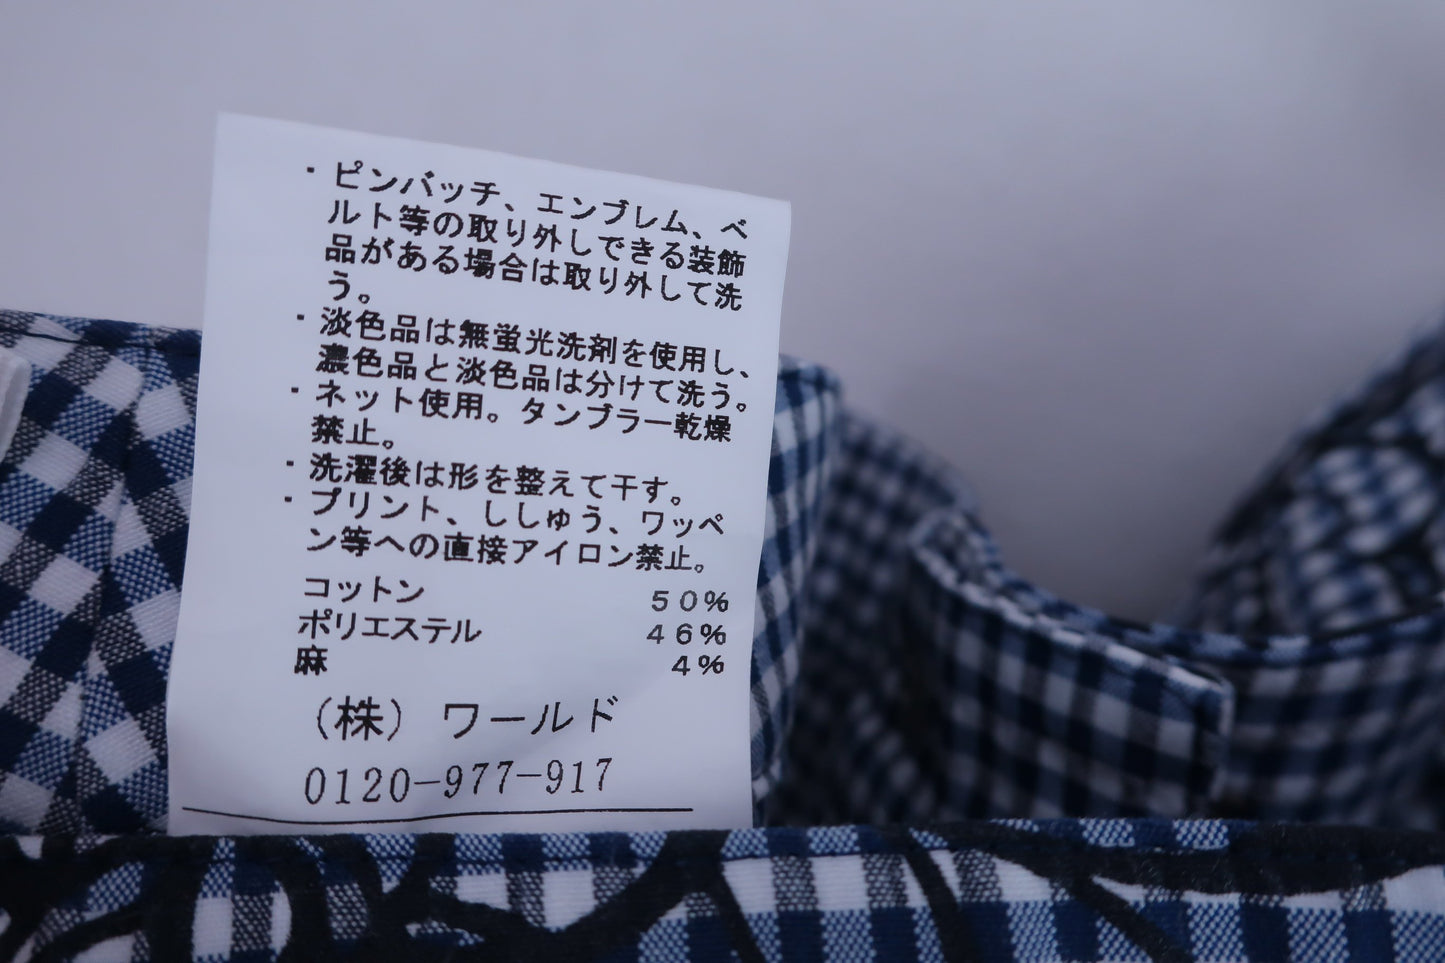 ・ピンバッチ、エンブレム、ベ
ルト等の取り外しできる装飾
品がある場合は取り外して洗
う。
・淡色品は無蛍光洗剤を使用し、
濃色品と淡色品は分けて洗う。
・ネット使用。タンブラー乾燥
禁止。
・洗濯後は形を整えて干す。
・プリント、ししゅう、ワッペ
ン等への直接アイロン禁止。
コットン 50%
ポリエステル 46%
麻 4%
(株) ワールド
0120-977-917